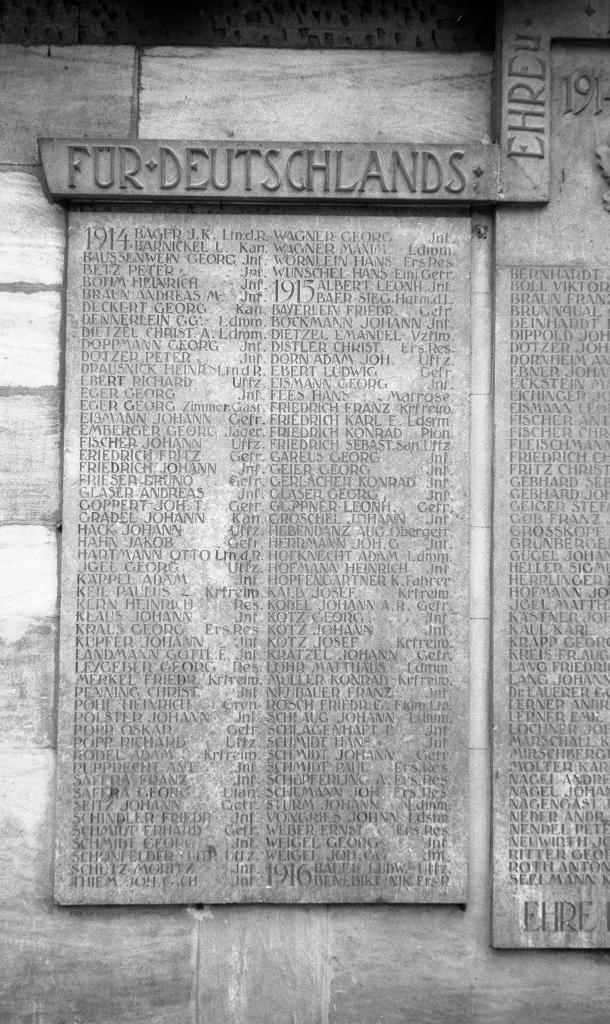 FÜR·DEUTSCHLANDS·
EHRE U
191
1914 BAGER J.K. Ltn.d.R.
BARNICKEL L. Kan.
BAUSSENWEIN GEORG Jnf.
BETZ PETER Jnf.
BÖHM HEINRICH Jnf.
BRAUN ANDREAS M. Jnf.
DECKERT GEORG Kan.
DENNERLEIN GG. Ldmm.
DIETZEL CHRIST. A. Ldmm.
DOPPMANN GEORG Jnf.
DOTZER PETER Jnf.
DRAUSNICK HEINR. Ltn d R.
EBERT RICHARD Uffz.
EGER GEORG Jnf.
EGER GEORG Zimmer.Gast.
EISMANN JOHANN Gefr.
EMBERGER GEORG Jäger.
FISCHER JOHANN Uffz.
FRIEDRICH FRITZ Gefr.
FRIEDRICH JOHANN Jnf.
FRIESER BRUNO Gefr.
GLASER ANDREAS Jnf.
GÖPPERT JOH. T. Gefr.
GRADEL JOHANN Kan.
HACK JOHANN Uffz.
HAFN JAKOB Gefr.
HARTMANN OTTO Ltn.d.R.
JGEL GEORG Uffz.
KÄPPEL ADAM Jnf.
KEIL PAULUS Krfreiw.
KERN HEINRICH Res.
KLAUS JOHANN Jnf.
KRAUS GEORG Ers.Res
KUPFER JOHANN Jnf.
LANDMANN GOTTL. E. Jnf.
LEYGEBER GEORG Res.
MERKEL FRIEDR. Krfreiw.
PENNING CHRIST. Jnf.
PÖHL HEINRICH Gren.
POLSTER JOHANN Jnf.
POPP OSKAR Gefr.
POPP RICHARD Uffz.
RÖDEL ADAM Krfreiw.
RUPPRECHT ANT. Jnf.
SAFFRA FRANZ Jnf.
SAFFRA GEORG Ulan.
SEITZ JOHANN Gefr.
SCHINDLER FRIEDR. Jnf.
SCHMIDT ERHARD Gefr.
SCHMIDT GEORG Jnf.
SCHÖNFELDER Uffz.
SCHÜTZ MORITZ Jnf.
THIEM JOH. G. CH. Jnf.
WAGNER GEORG Jnf.
WAGNER MAXIM. Ldmm.
WÖRNLEIN HANS Ers Res.
WUNSCHEL HANS Einj Gefr.
1915 ALBERT LEONH. Jnf.
BAER SIEG. Hptm.d.L.
BAYERLEIN FRIEDR. Gefr.
BÖCKMANN JOHANN Jnf.
DIETZEL EMANUEL Vzfw.
DISTLER CHRIST. Ers.Res.
DORN ADAM JOH. Uffz.
EBERT LUDWIG Gefr.
EISMANN GEORG Jnf.
FEES HANS Matrose
FRIEDRICH FRANZ Krfreiw.
FRIEDRICH KARL E. Ldstm.
FRIEDRICH KONRAD Pion.
FRIEDRICH SEBAST. San.Uffz.
GAREUS GEORG Jnf.
GEIER GEORG Jnf.
GERLACHER KONRAD Jnf.
GLASER GEORG Jnf.
GÜPPNER LEONH. Gefr.
GRÖSCHEL JOHANN Jnf.
HEBENDANZ AUG. Obergefr.
HERRMANN JOH. G. Jnf.
HOFKNECHT ADAM Ldmm.
HOFMANN HEINRICH Jnf.
HOPFENGÄRTNER K. Fahrer
KALB JOSEF Krfreiw.
KÖBEL JOHANN A.R. Gefr.
KOTZ GEORG Jnf.
KOTZ JOHANN Jnf.
KOTZ JOSEF Krfreiw.
KRATZEL JOHANN Gefr.
LÖHR MATTHÄUS Ldmm.
MÜLLER KONRAD Krfreiw.
NEUBAUER FRANZ Jnf.
RÖSCH FRIEDR. G.
SCHLAUG JOHANN Ldmm.
SCHLAGENHAFT P. Jnf.
SCHMIDT HANS Jnf.
SCHMIDT JOHANN Gefr.
SCHMIDT PAUL Ers.Res.
SCHÖPFERLING A. Ers.Res.
SCHUMANN JOH. Ers.Res.
STURM JOHANN Ldmm.
VONGRIES JOHN Ldstm
WEBER ERNST Ers.Res.
WEIGEL GEORG Jnf.
WEIGEL JOH. GG. Jnf.
1916 BAUER LUDW. Uffz.
BENEDIKT NIK. Ers R.
BERNHARDT
BÖLL VIKTOR
BRAUN FRAN
BRUNNQUAL
DEINHARDT
DIPPOLD JOH
DOTZER JOH
DORNHEIM
EBNER JOHA
ECKSTEIN M
EICHINGER JO
EISMANN LEO
FISCHER AND
FISCHER FRA
FLEISCHMANN
FRIEDRICH C
FRITZ CHRIST
GEBHARD SE
GEBHARD JO
GEIGER STEF
GÖB FRANZ
GROSSKOPF
GRÜNBERGE
GÜGEL JOHAN
HELLER SIGM
HERRLINGER
HOFMANN JO
JGEL MATTH
KÄSTNER JOH
KAUL KARL
KRAPP GEORG
KREIS FR. AUG
LANG FRIEDRI
LANG JOHANN
DE LAUERER G
LERNER ANDR
LERNER EMIL
LOCHNER JOH
MARSCHALL
MIRSCHBERGE
MÖLTER KAR
NAGEL ANDRE
NAGEL JOHAN
NAGENGAST
NEBER ANDR
NENDEL PETE
NEUWIRTH JO
RITTER GEOR
ROTH ANTON
SEELMANN N
EHRE